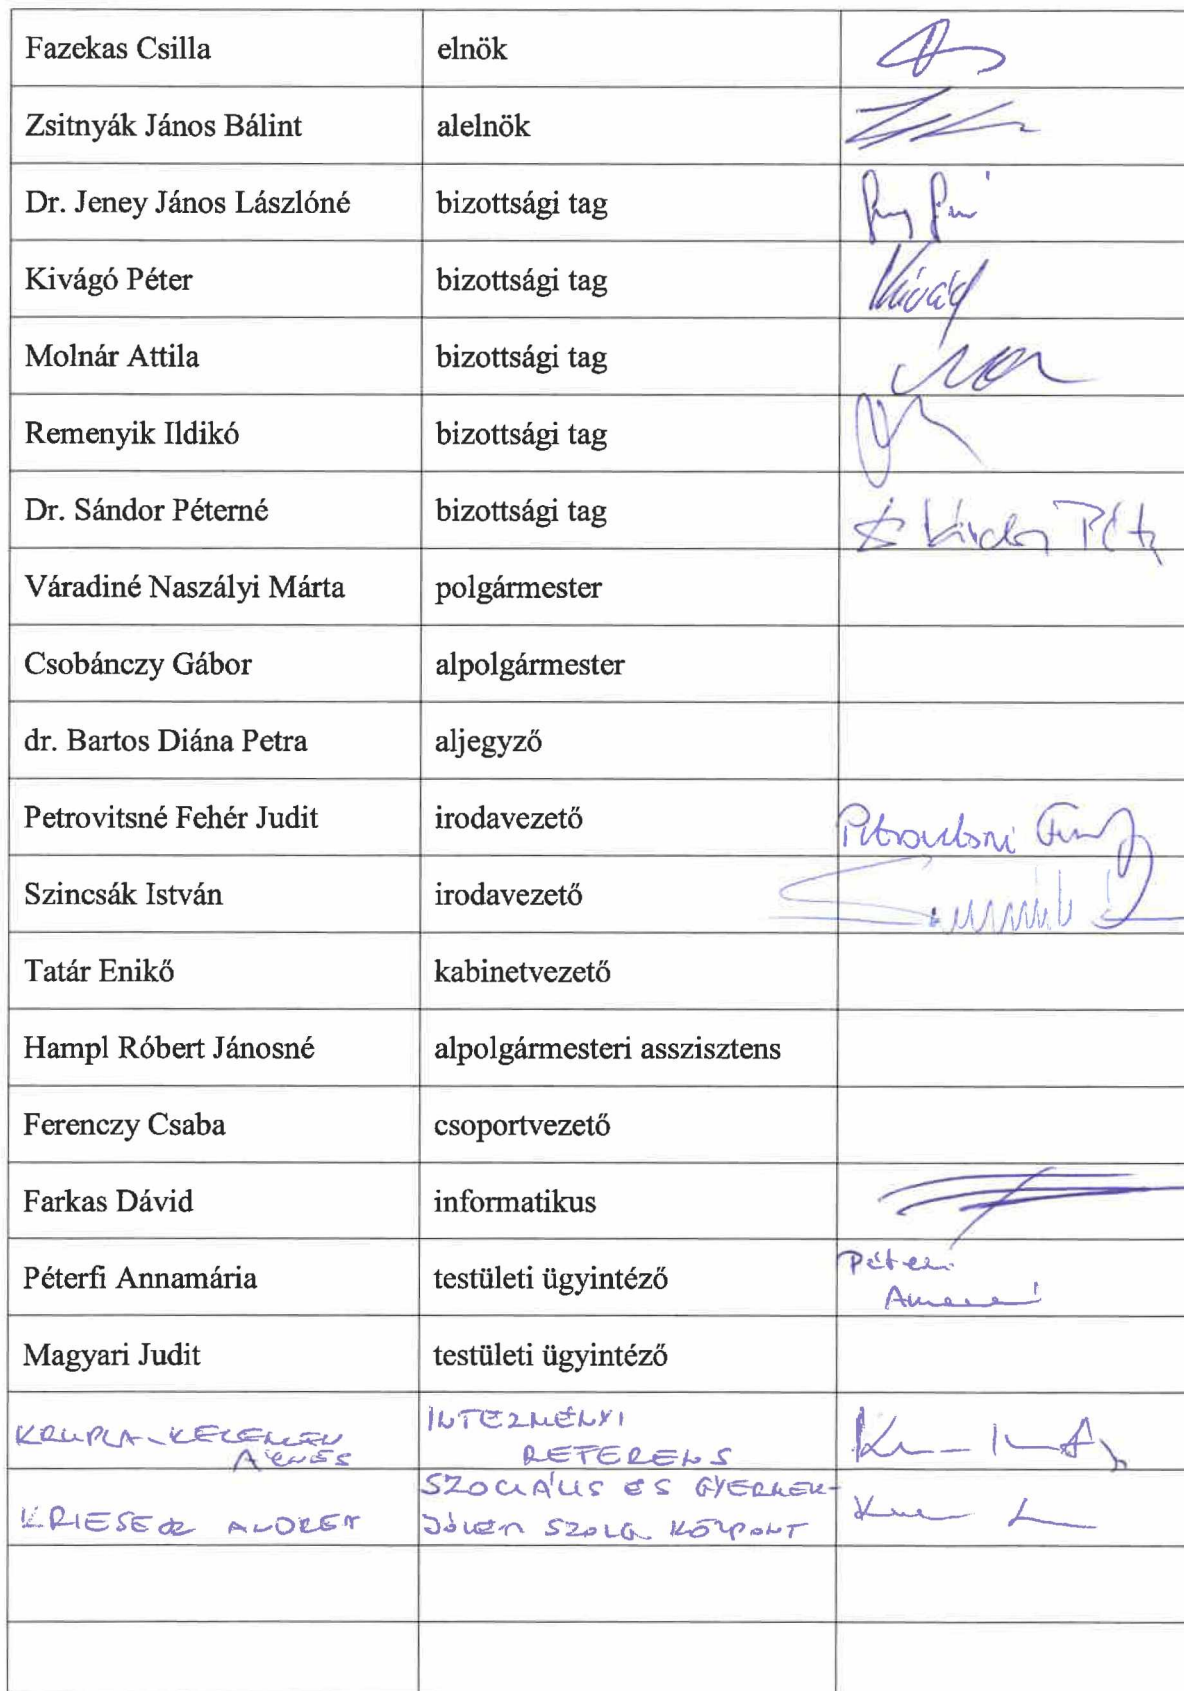 Fazekas Csilla elnök
Zsitnyák János Bálint alelnök
Dr. Jeney János Lászlóné bizottsági tag
Kivágó Péter bizottsági tag
Molnár Attila bizottsági tag
Remenyik Ildikó bizottsági tag
Dr. Sándor Péterné bizottsági tag
Váradiné Naszályi Márta polgármester
Csobánczy Gábor alpolgármester
dr. Bartos Diána Petra aljegyző
Petrovitsné Fehér Judit irodavezető
Szincsák István irodavezető
Tatár Enikő kabinetvezető
Hampl Róbert Jánosné alpolgármesteri asszisztens
Ferenczy Csaba csoportvezető
Farkas Dávid informatikus
Péterfi Annamária testületi ügyintéző
Magyari Judit testületi ügyintéző
KRUPLA-KELEMEN INTÉZMÉNYI
ÁGNES REFERENS
SZOCIÁLIS ÉS GYERMEK-
KRIESER ANDREA JÓLÉTI SZOLG. KÖZPONT